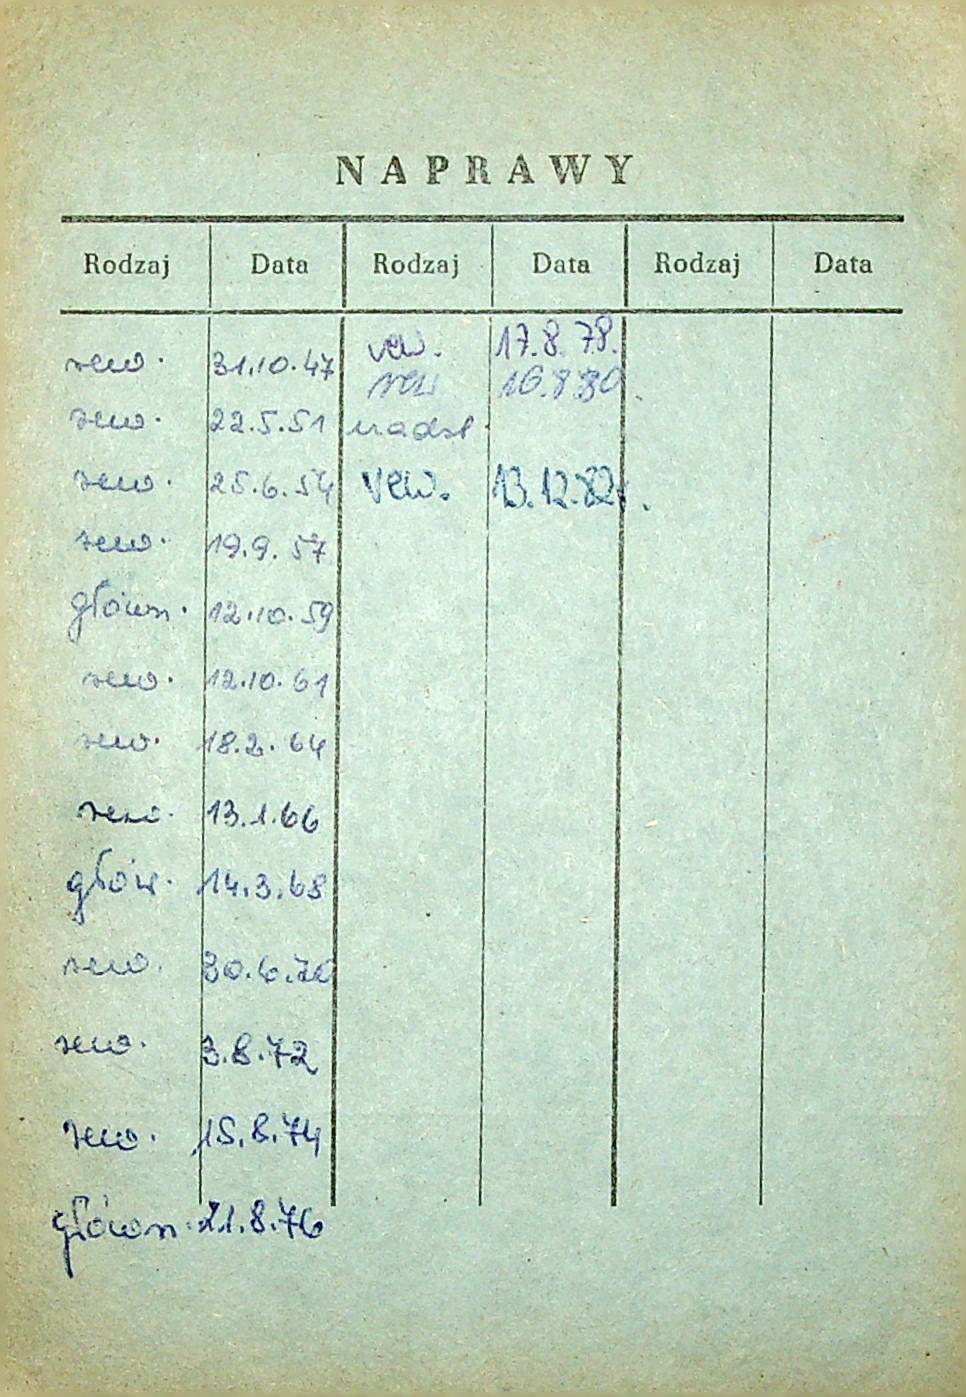 NAPRAWY
Rodzaj Data Rodzaj Data Rodzaj Data
rew. 31.10.47 rew. 17.8.78.
rew 16.8.80.
rew. 22.5.51 nadzt.
rew. 25.6.54 rew. 13.12.82r.
rew. 19.9.57
główn. 12.10.59
rew. 12.10.61
rew. 18.2.64
rew. 13.1.66
głów. 14.3.68
rew. 30.6.70
rew. 3.8.72
rew. 15.8.74
główn. 21.8.76